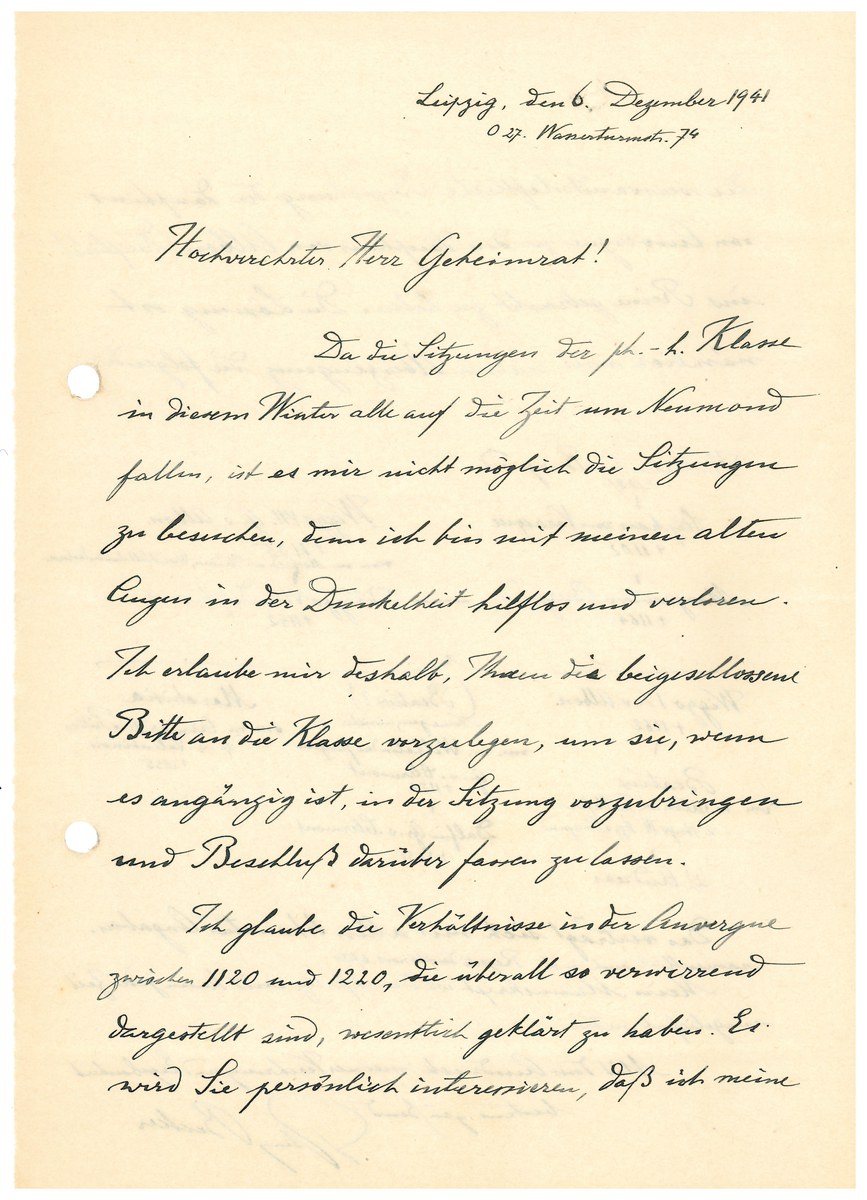 Leipzig, den 6. Dezember 1941
O 27. Wasserturmstr. 74
Hochverehrter Herr Geheimrat!
Da die Sitzungen der ph.-h. Klasse
in diesem Winter alle auf die Zeit um Neumond
fallen, ist es mir nicht möglich die Sitzungen
zu besuchen, denn ich bin mit meinen alten
Augen in der Dunkelheit hilflos und verloren.
Ich erlaube mir deshalb, Ihnen die beigeschlossene
Bitte an die Klasse vorzulegen, um sie, wenn
es angängig ist, in der Sitzung vorzubringen
und Beschluß darüber fassen zu lassen.
Ich glaube die Verhältnisse in der Auvergne
zwischen 1120 und 1220, die überall so verwirrend
dargestellt sind, wesentlich geklärt zu haben. Es
wird Sie persönlich interessieren, daß ich meine